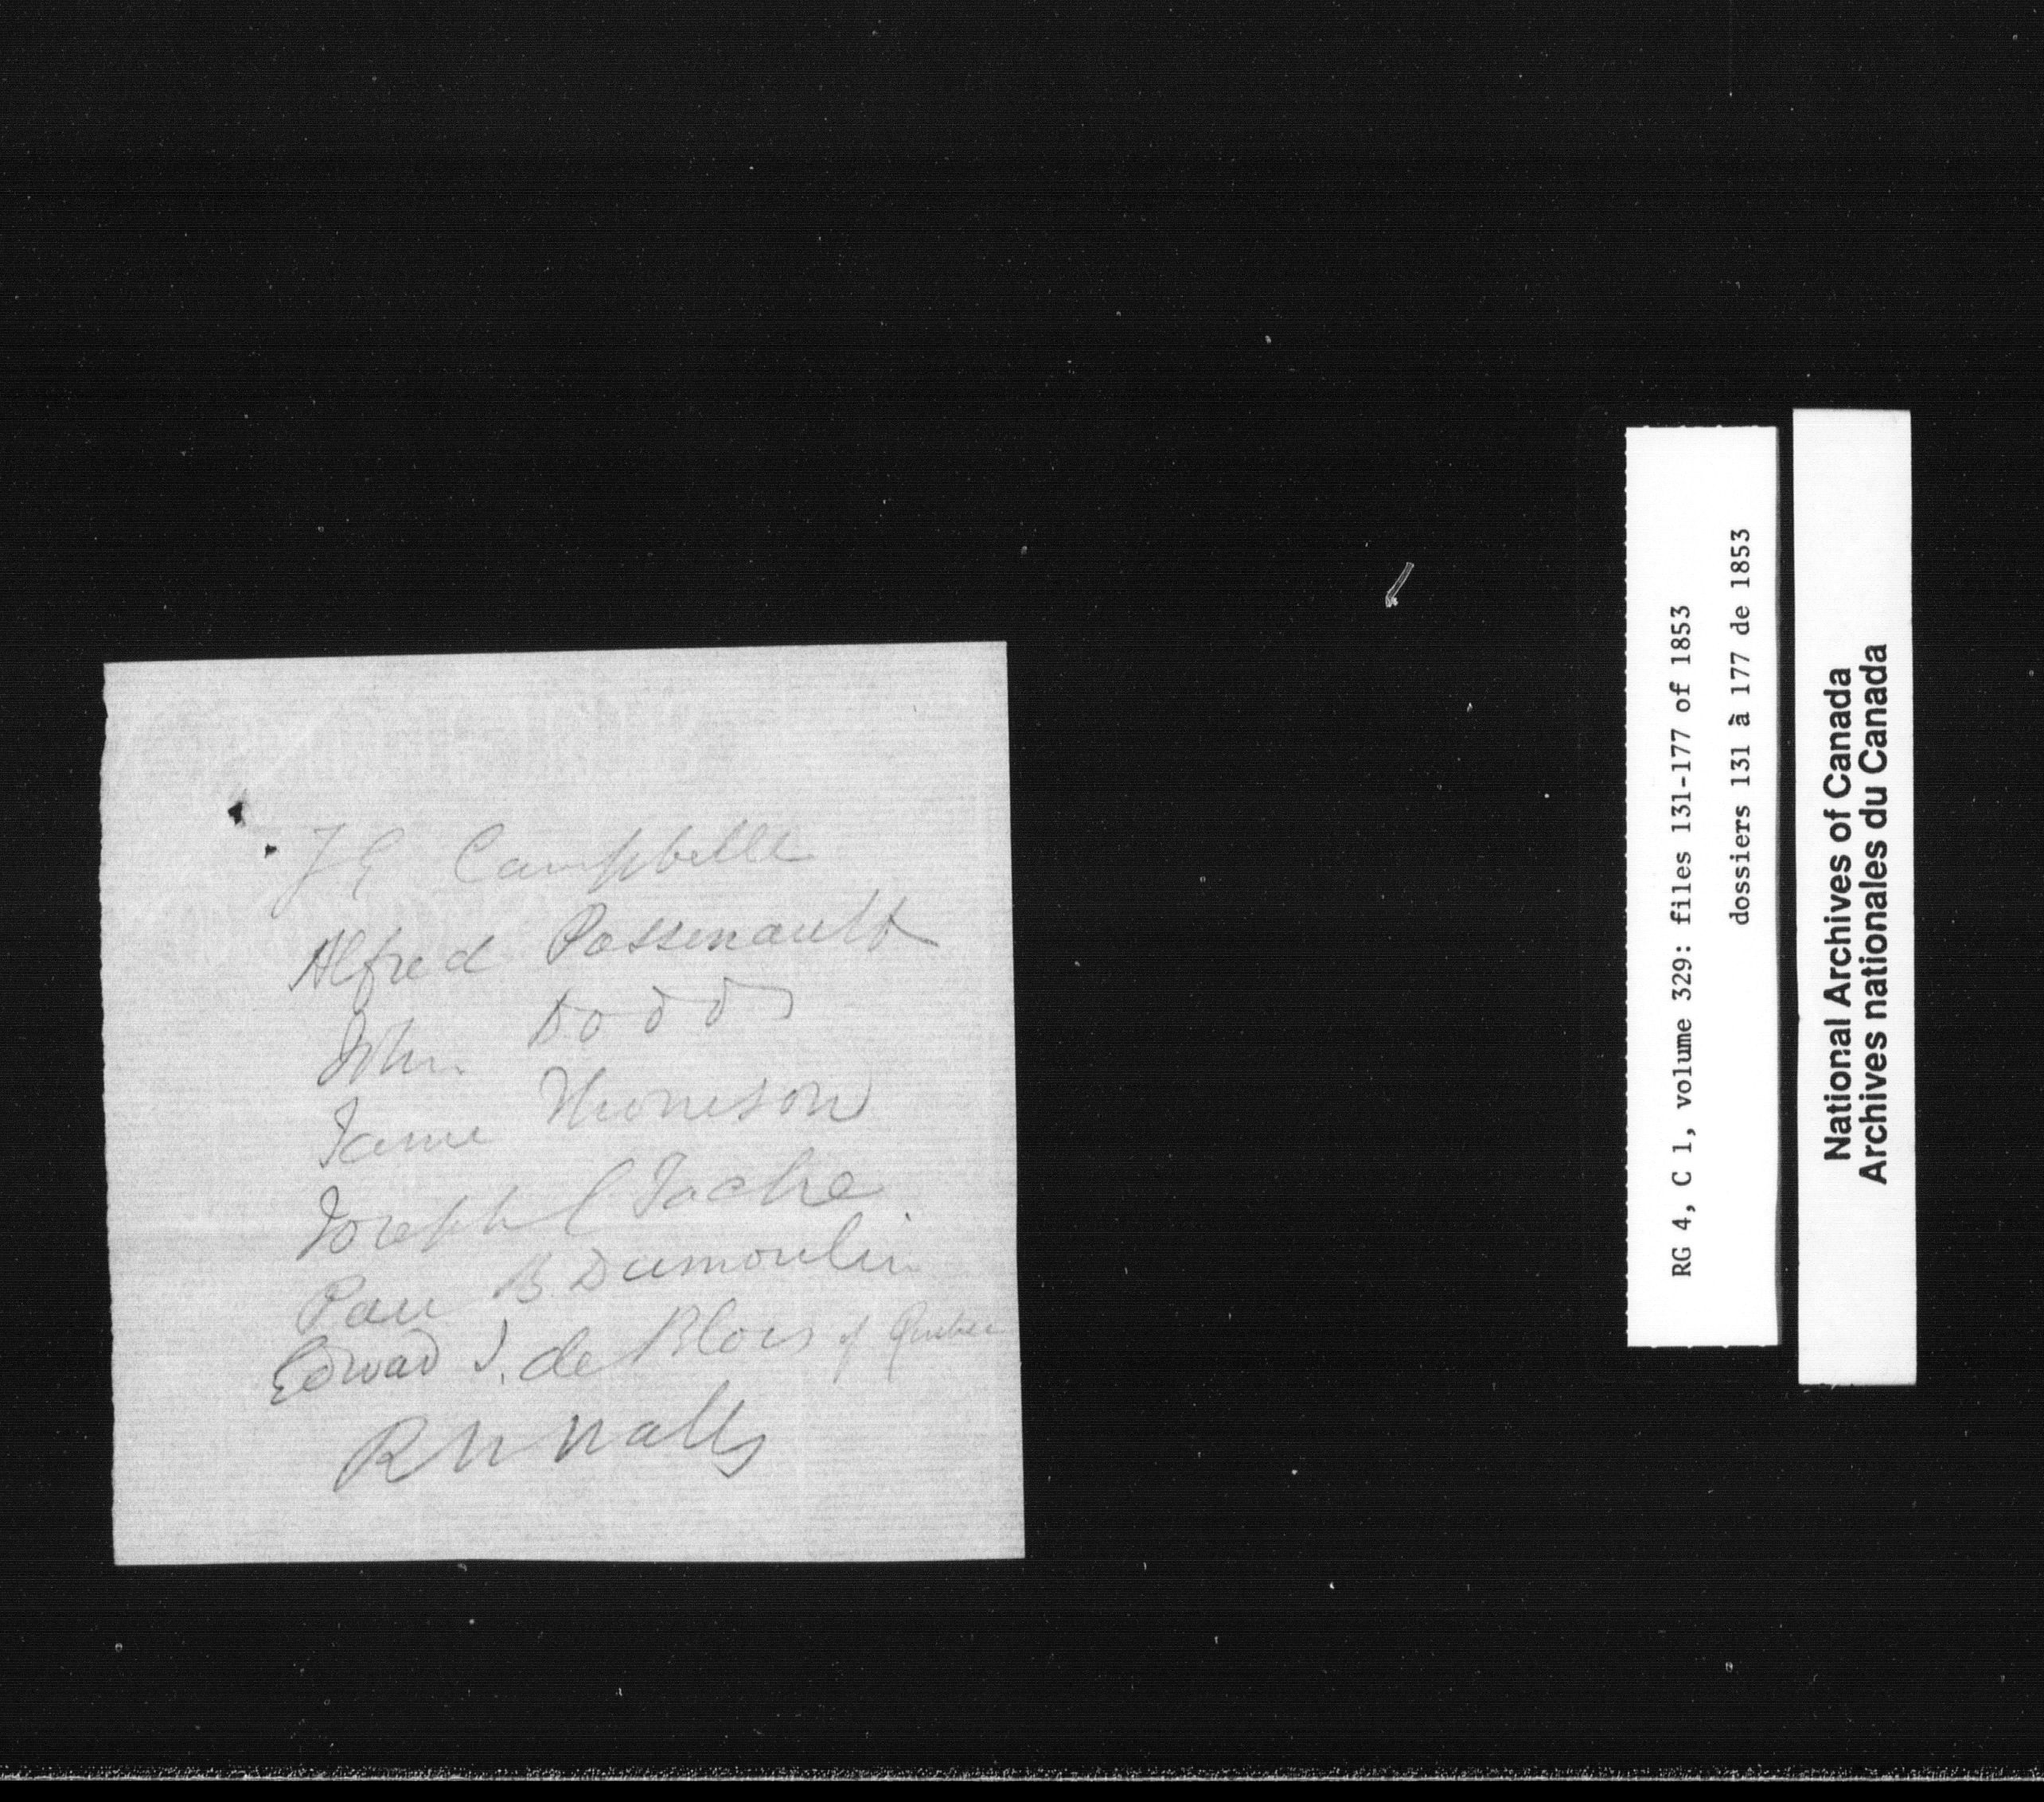 J G Campbell
Alfred Passenault
John Dodds
Jame Thomson
Joseph C Tache
Pau B. Dumoulin
Edward J. de Blois of Quebec
R N Watts
RG 4, C 1, volume 329: files 131-177 of 1853
dossiers 131 à 177 de 1853
National Archives of Canada
Archives nationales du Canada